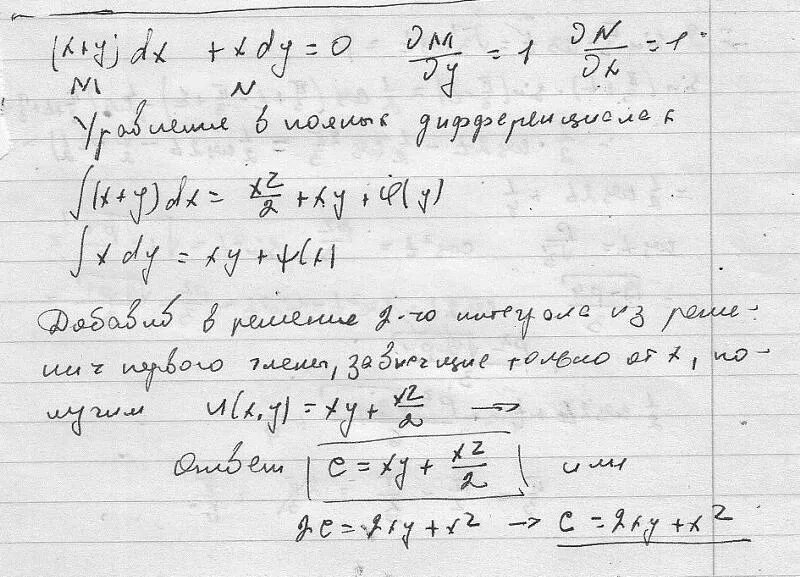 (x+y) dx + x dy = 0 ∂M/∂y = 1 ∂N/∂x = 1
M N
Уравнение в полных дифференциалах
∫(x+y) dx = x²/2 + xy + φ(y)
∫ x dy = xy + ψ(x)
Добавив в решение 2-го интеграла из реше-
ния первого члены, зависящие только от x, по-
лучим u(x,y) = xy + x²/2 →
Ответ C = xy + x²/2 или
2C = 2xy + x² → C = 2xy + x²